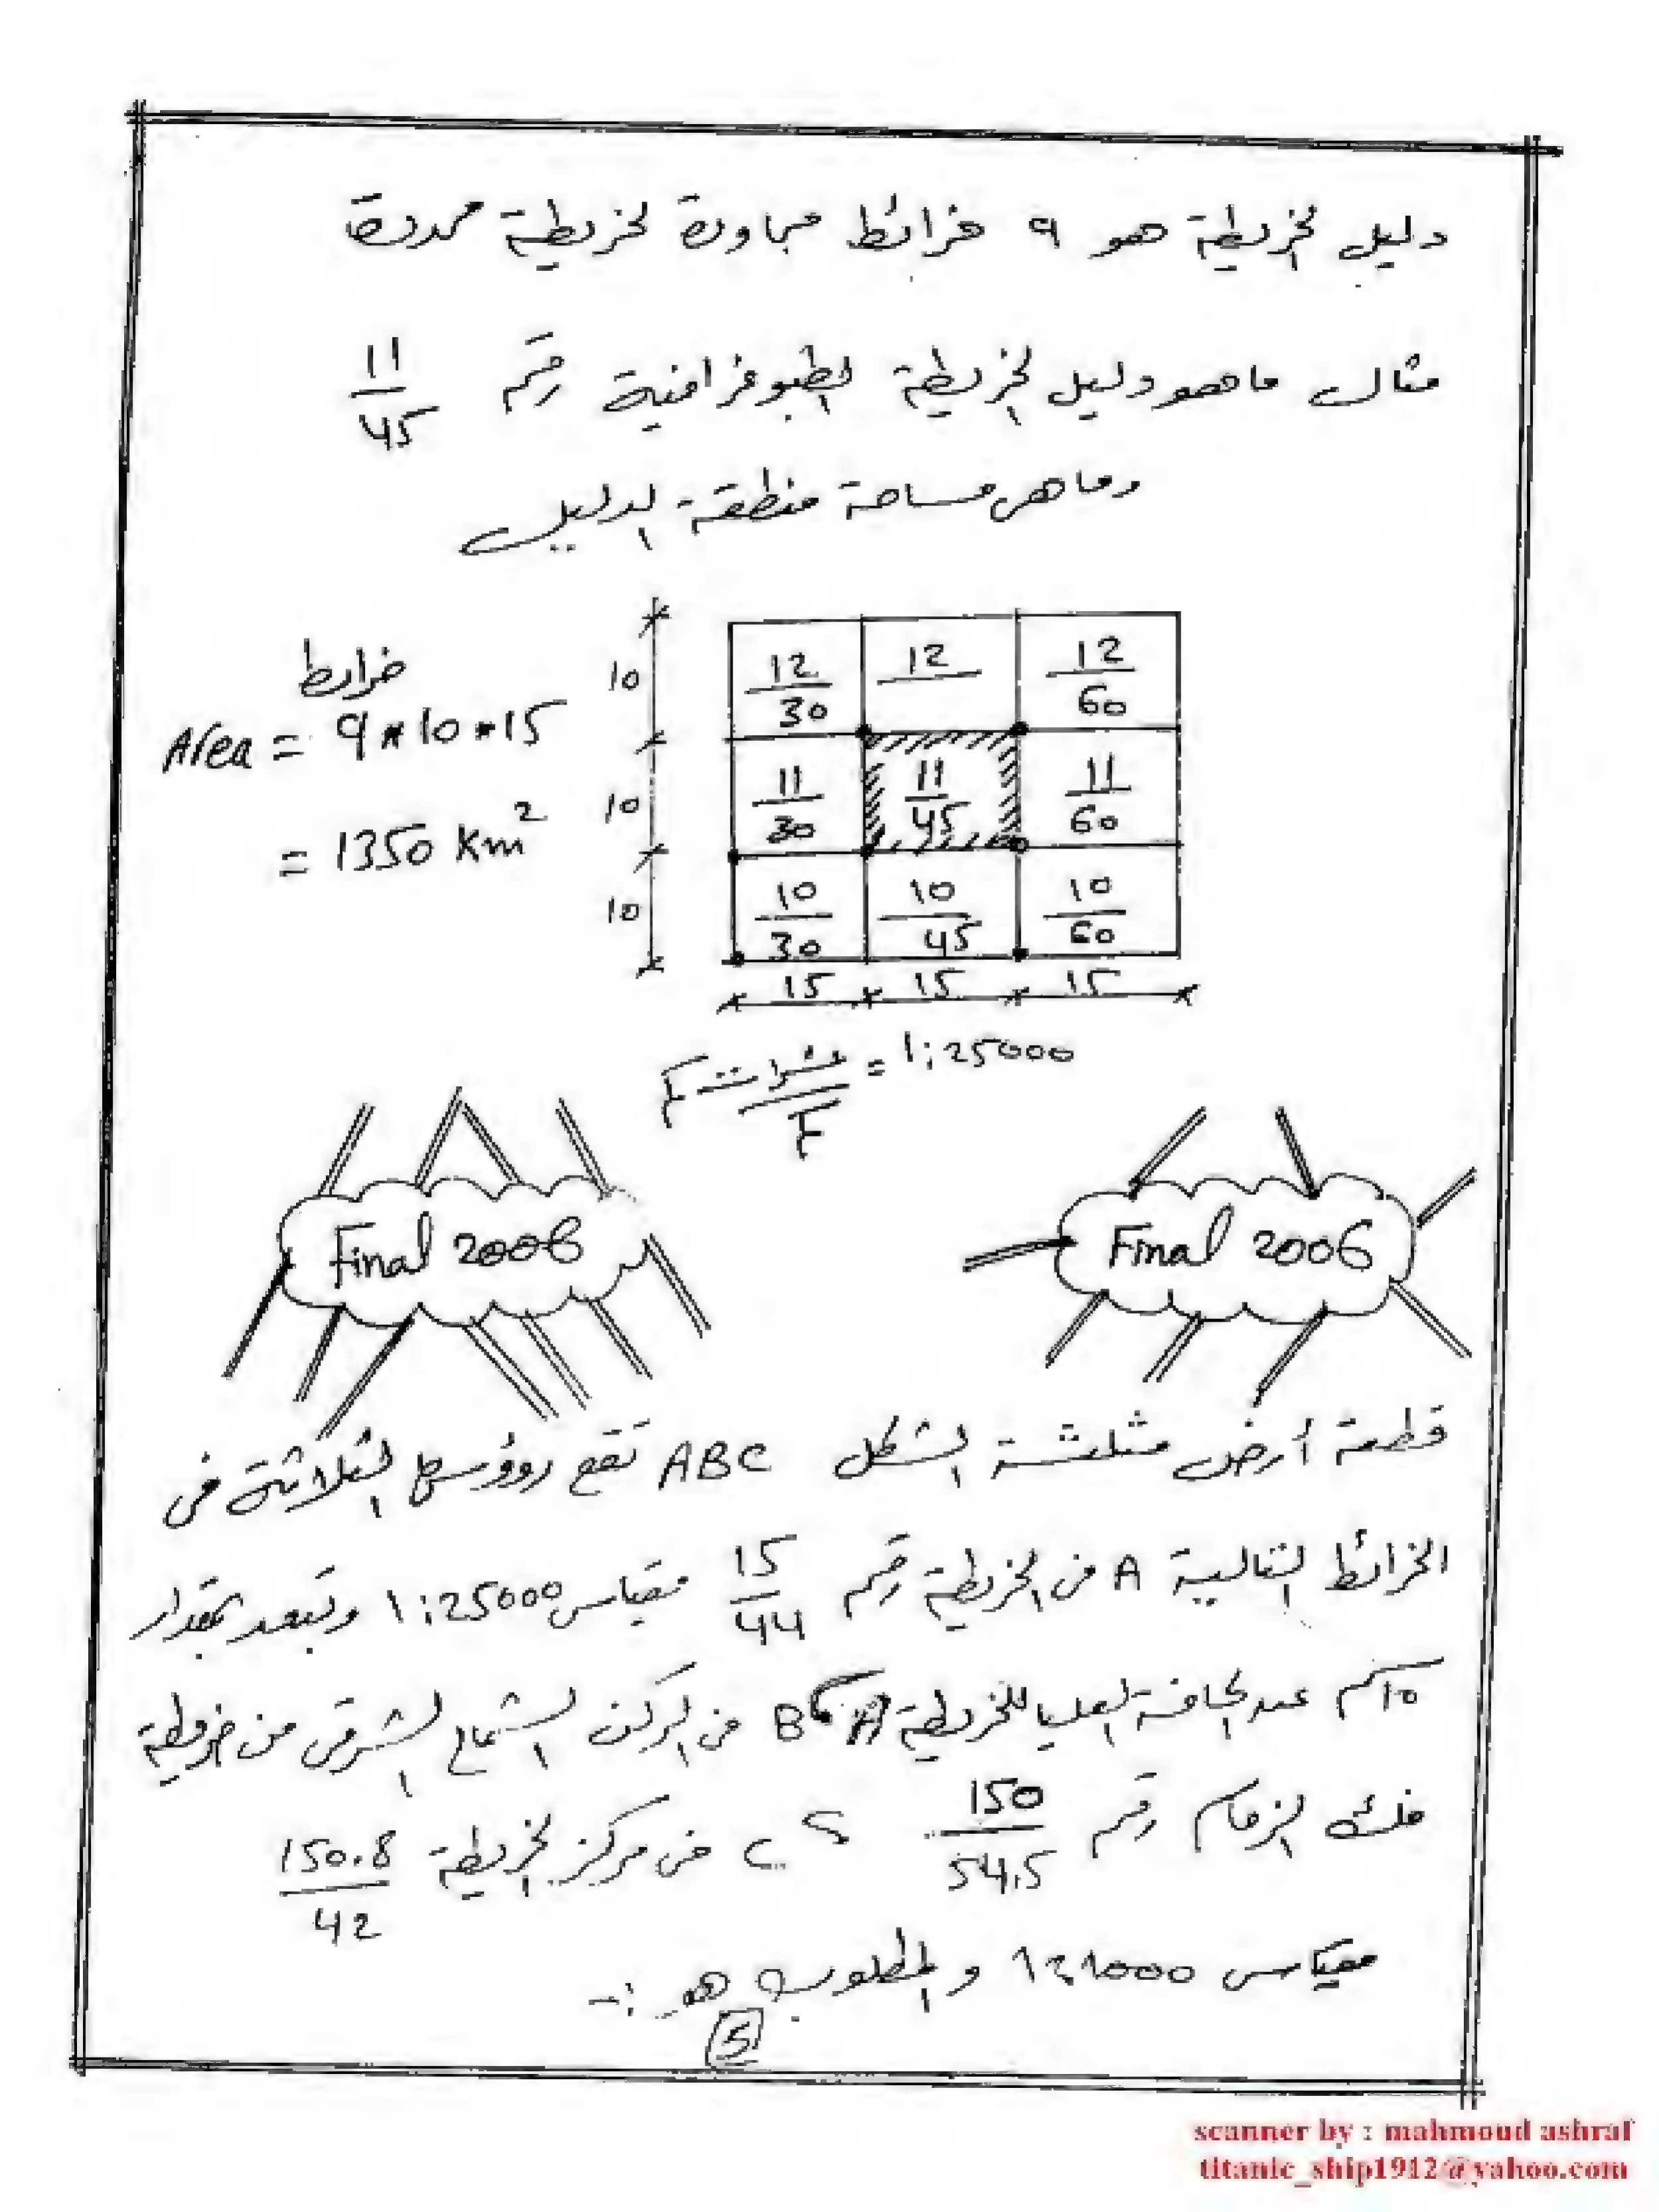 دليل الخريطة هو 9 خرائط مجاورة لخريطة محددة
مثال ما هو دليل الخريطة الطبوغرافية رقم 11/45
وما هي مساحة منطقة الدليل
خرائط
Area = 9*10*15
= 1350 Km²
10
10
10
12/30 12 12/60
11/30 11/45 11/60
10/30 10/45 10/60
15 15 15
= 1:25000
Final 2006
Final 2006
قطعة أرض مثلثة الشكل ABC تقع رؤوسها الثلاثة في
الخرائط التالية A في الخريطة رقم 15/44 مقياس 1:25000 وتبعد بمقدار
عند الحافة العليا للخريطة B في الركن الشمالي الشرقي من خريطة
فك الزمام رقم 150/54.5 في مركز الخريطة 150.8/42
مقياس 1:1000 والمطلوب هو :-
5
scanner by : mahmoud ashraf
titanic_ship1912@yahoo.com